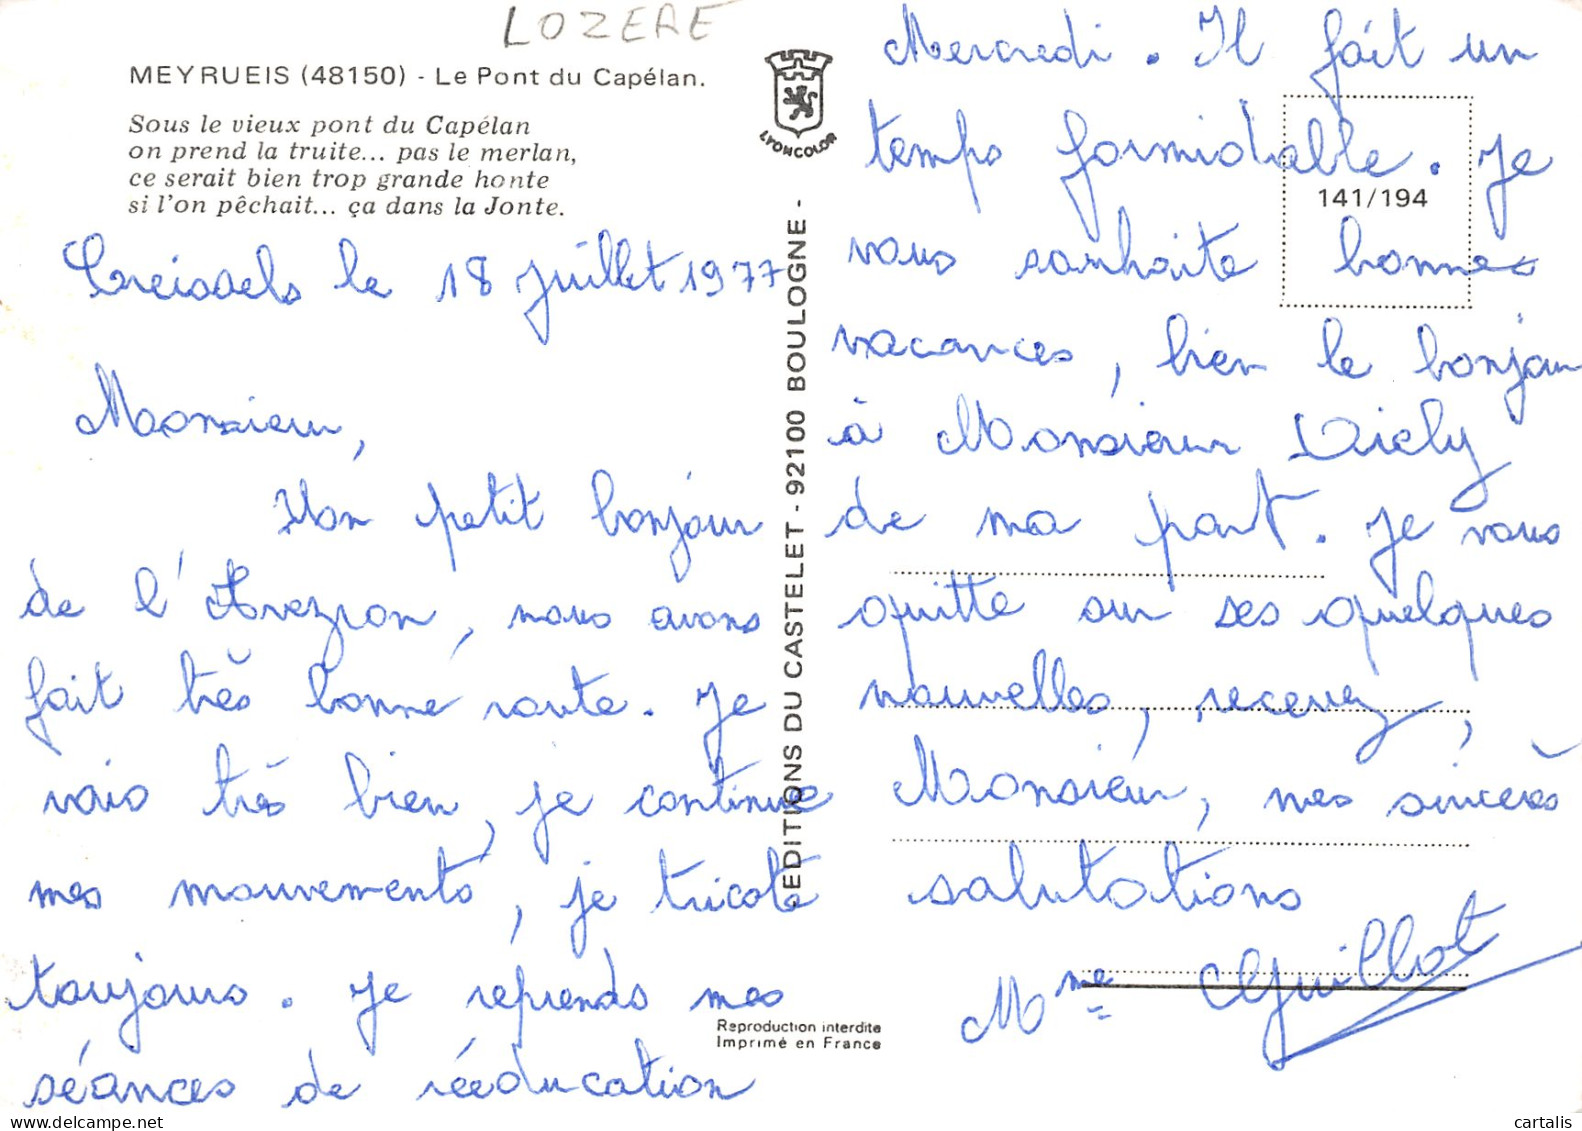 LOZERE
MEYRUEIS (48150) - Le Pont du Capélan.
Sous le vieux pont du Capélan
on prend la truite... pas le merlan,
ce serait bien trop grande honte
si l'on pêchait... ça dans la Jonte.
LYONCOLOR
EDITIONS DU CASTELET - 92100 BOULOGNE -
141/194
Creissels le 18 Juillet 1977
Monsieur,
Mon petit bonjour
de l'Aveyron, nous avons
fait très bonne route. Je
vais très bien, je continue
mes mouvements, je tricote
toujours. Je reprends mes
séances de rééducation
Mercredi. Il fait un
temps formidable. Je
vous souhaite bonnes
vacances, bien le bonjour
à Monsieur
de ma part. Je vous
quitte sur ses quelques
nouvelles, recevez,
Monsieur, mes sincères
salutations
Mme Guillot
Reproduction interdite
Imprimé en France
cartalis
www.delcampe.net